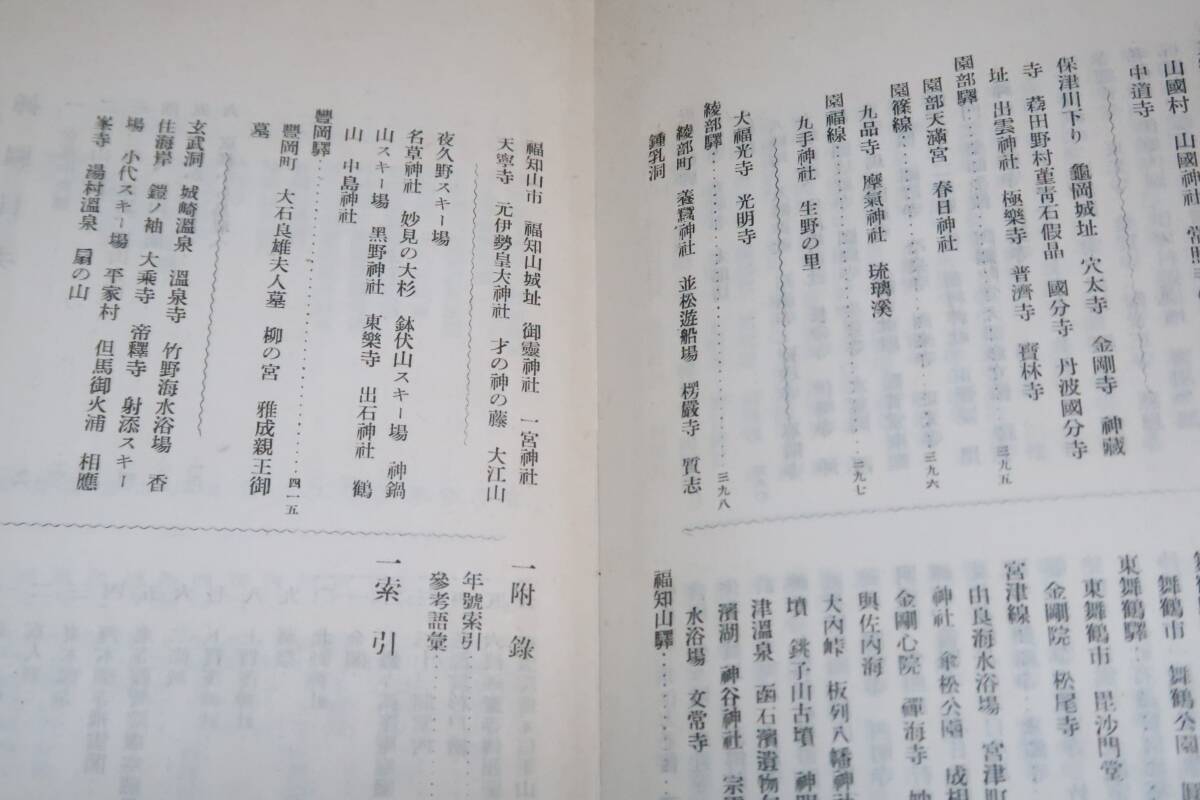 山國村 山國神社 常照
中道寺
保津川下り 龜岡城址 穴太寺 金剛寺 神藏
寺 蕀田野村菫靑石假晶 國分寺 丹波國分寺
址 出雲神社 極樂寺 普濟寺 寶林寺
園部驛‥‥‥‥‥‥三九五
園部天滿宮 春日神社
園篠線‥‥‥‥‥‥三九六
九品寺 摩氣神社 琉璃溪
園福線‥‥‥‥‥‥三九七
九手神社 生野の里
大福光寺 光明寺
綾部驛‥‥‥‥‥‥三九八
綾部町 養蠶神社 並松遊船場 楞嚴寺 質志
鍾乳洞
舞鶴市 舞鶴公園
東舞鶴驛‥‥
東舞鶴市 毘沙門堂
金剛院 松尾寺
宮津線‥‥
由良海水浴場 宮津町
神社 傘松公園 成相
金剛心院 禪海寺 妙
與佐內海
大內峠 板列八幡神社
墳 銚子山古墳 神明
津溫泉 函石濱遺物包
濱湖 神谷神社 宗
水浴場 文常寺
福知山驛‥‥
福知山市 福知山城址 御靈神社 一宮神社
天寧寺 元伊勢皇大神社 才の神の藤 大江山
夜久野スキー場
名草神社 妙見の大杉 鉢伏山スキー場 神鍋
山スキー場 黑野神社 東樂寺 出石神社 鶴
山 中島神社
豐岡驛‥‥‥‥‥‥四一五
豐岡町 大石良雄夫人墓 柳の宮 雅成親王御
墓
玄武洞 城崎溫泉 溫泉寺 竹野海水浴場 香
住海岸 鎧ノ袖 大乘寺 帝釋寺 射添スキー
場 小代スキー場 平家村 但馬御火浦 相應
峯寺 湯村溫泉 扇の山
一附錄
年號索引‥‥
參考語彙‥‥
一索引